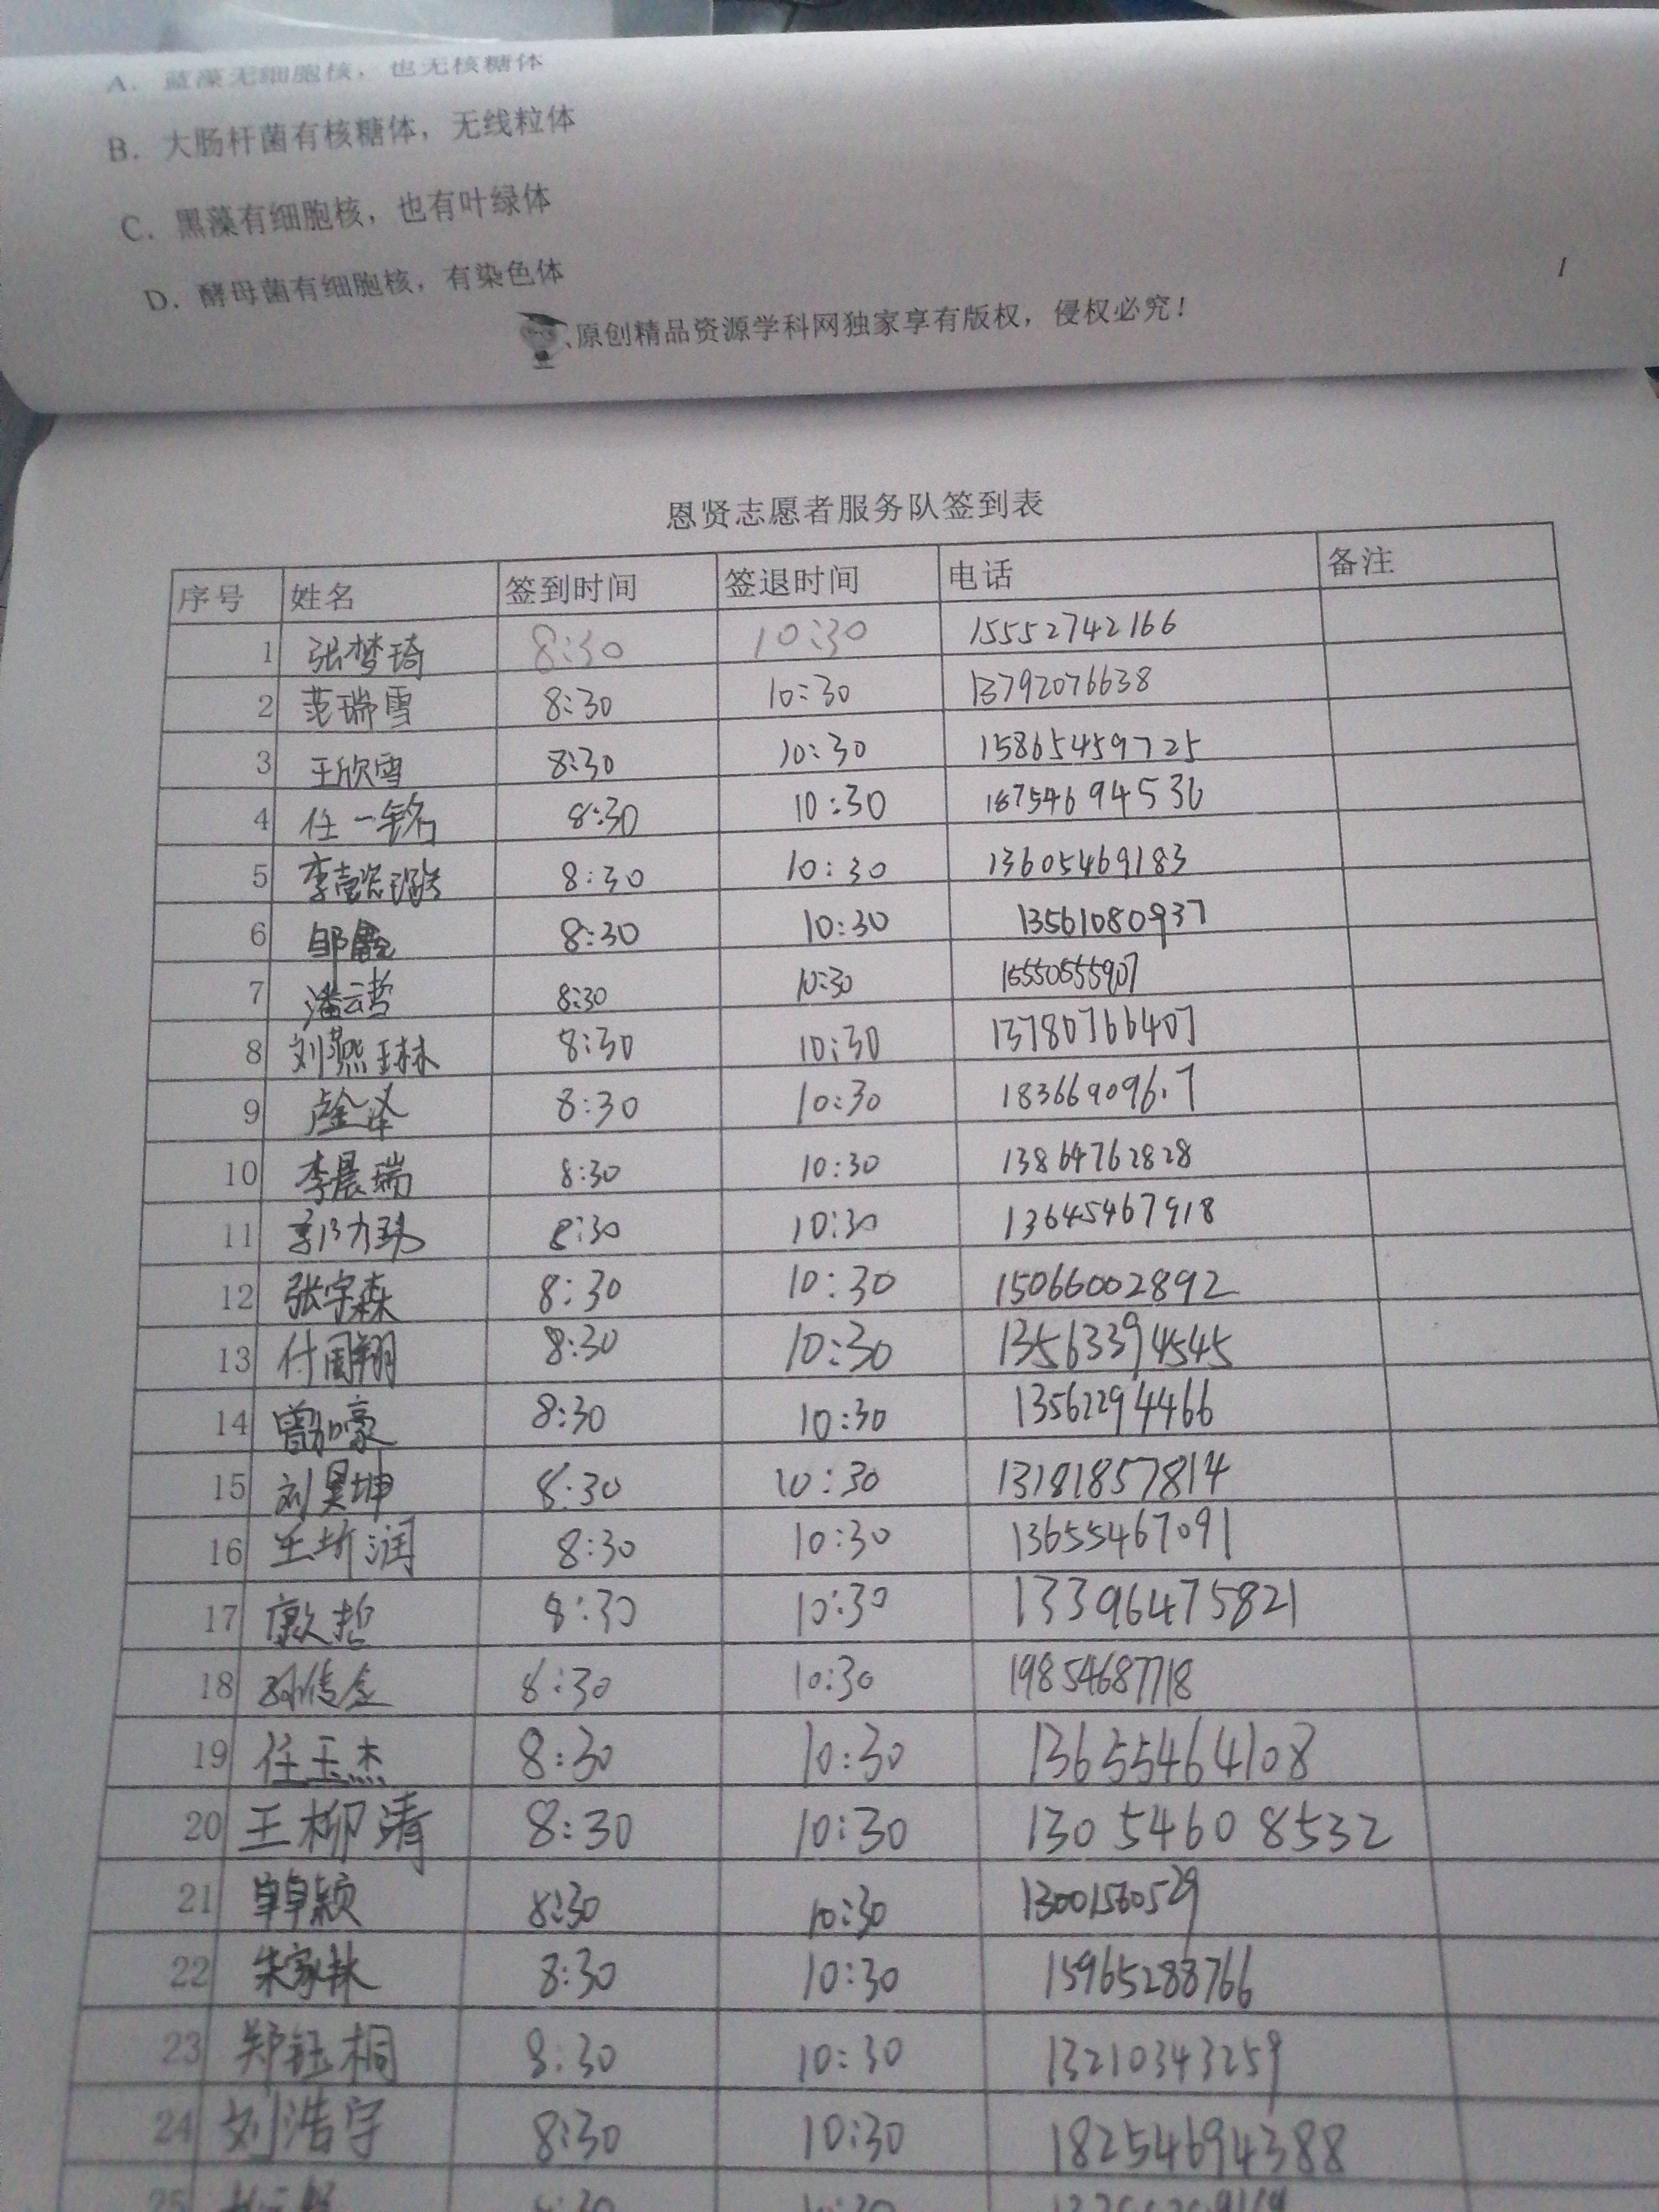 A. 蓝藻无细胞核，也无核糖体
B. 大肠杆菌有核糖体，无线粒体
C. 黑藻有细胞核，也有叶绿体
D. 酵母菌有细胞核，有染色体
1
原创精品资源学科网独家享有版权，侵权必究！
恩贤志愿者服务队签到表
序号 姓名 签到时间 签退时间 电话 备注
1 张梦琦 8:30 10:30 15552742166
2 范瑞雪 8:30 10:30 13792076638
3 王欣雪 8:30 10:30 15865459725
4 任一铭 8:30 10:30 18754694536
5 8:30 10:30 13605469183
6 8:30 10:30 13561080937
7 潘云哲 8:30 10:30
8 刘燕琳 8:30 10:30 13780766407
9 8:30 10:30
10 李晨瑞 8:30 10:30 13864762828
11 8:30 10:30 13645467918
12 张宇森 8:30 10:30 15066002892
13 付国翔 8:30 10:30 13563394545
14 曾加豪 8:30 10:30 13562294466
15 刘昊坤 8:30 10:30 13181857814
16 王圻润 8:30 10:30 13655467091
17 8:30 10:30 13396475821
18 8:30 10:30 19854687718
19 任玉杰 8:30 10:30 13655464108
20 王柳清 8:30 10:30 13054608532
21 8:30 10:30 13001560529
22 朱家林 8:30 10:30 15965288766
23 郑钰桐 8:30 10:30 13210343259
24 刘浩宇 8:30 10:30 18254694388
25